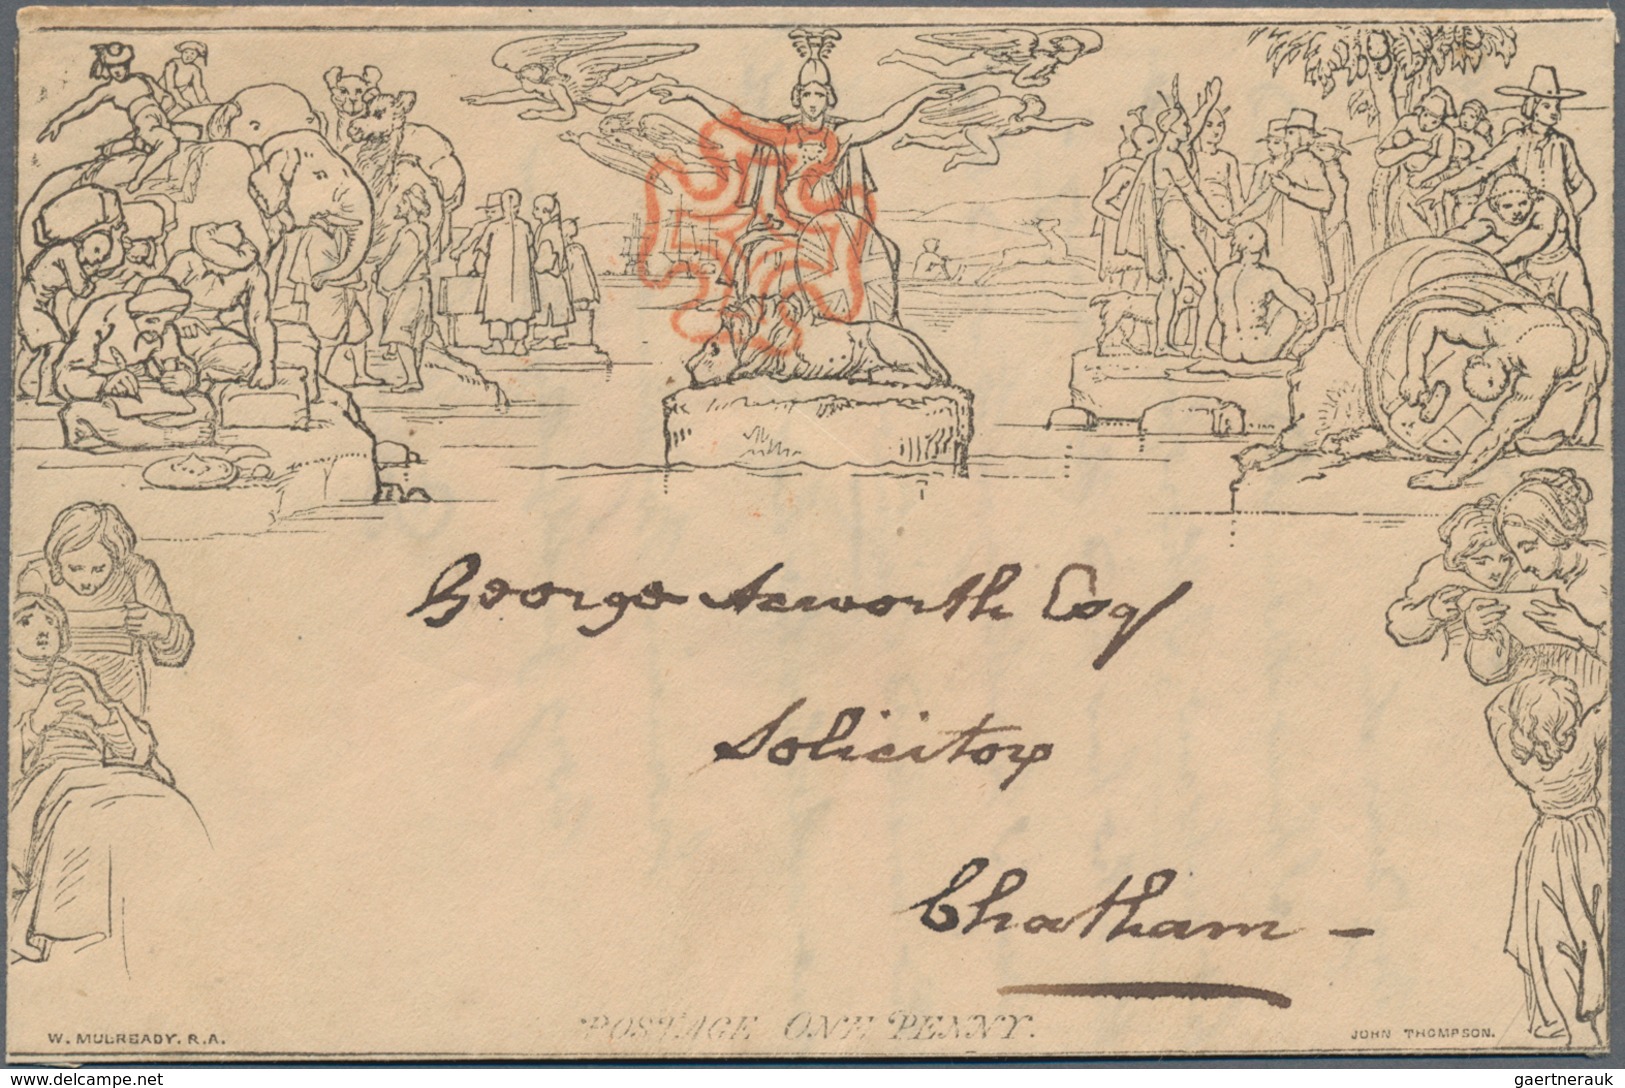 George Acworth Esq
Solicitor
Chatham -
POSTAGE ONE PENNY.
W. MULREADY. R.A.
JOHN THOMPSON.
delcampe.net
gaertnerauk